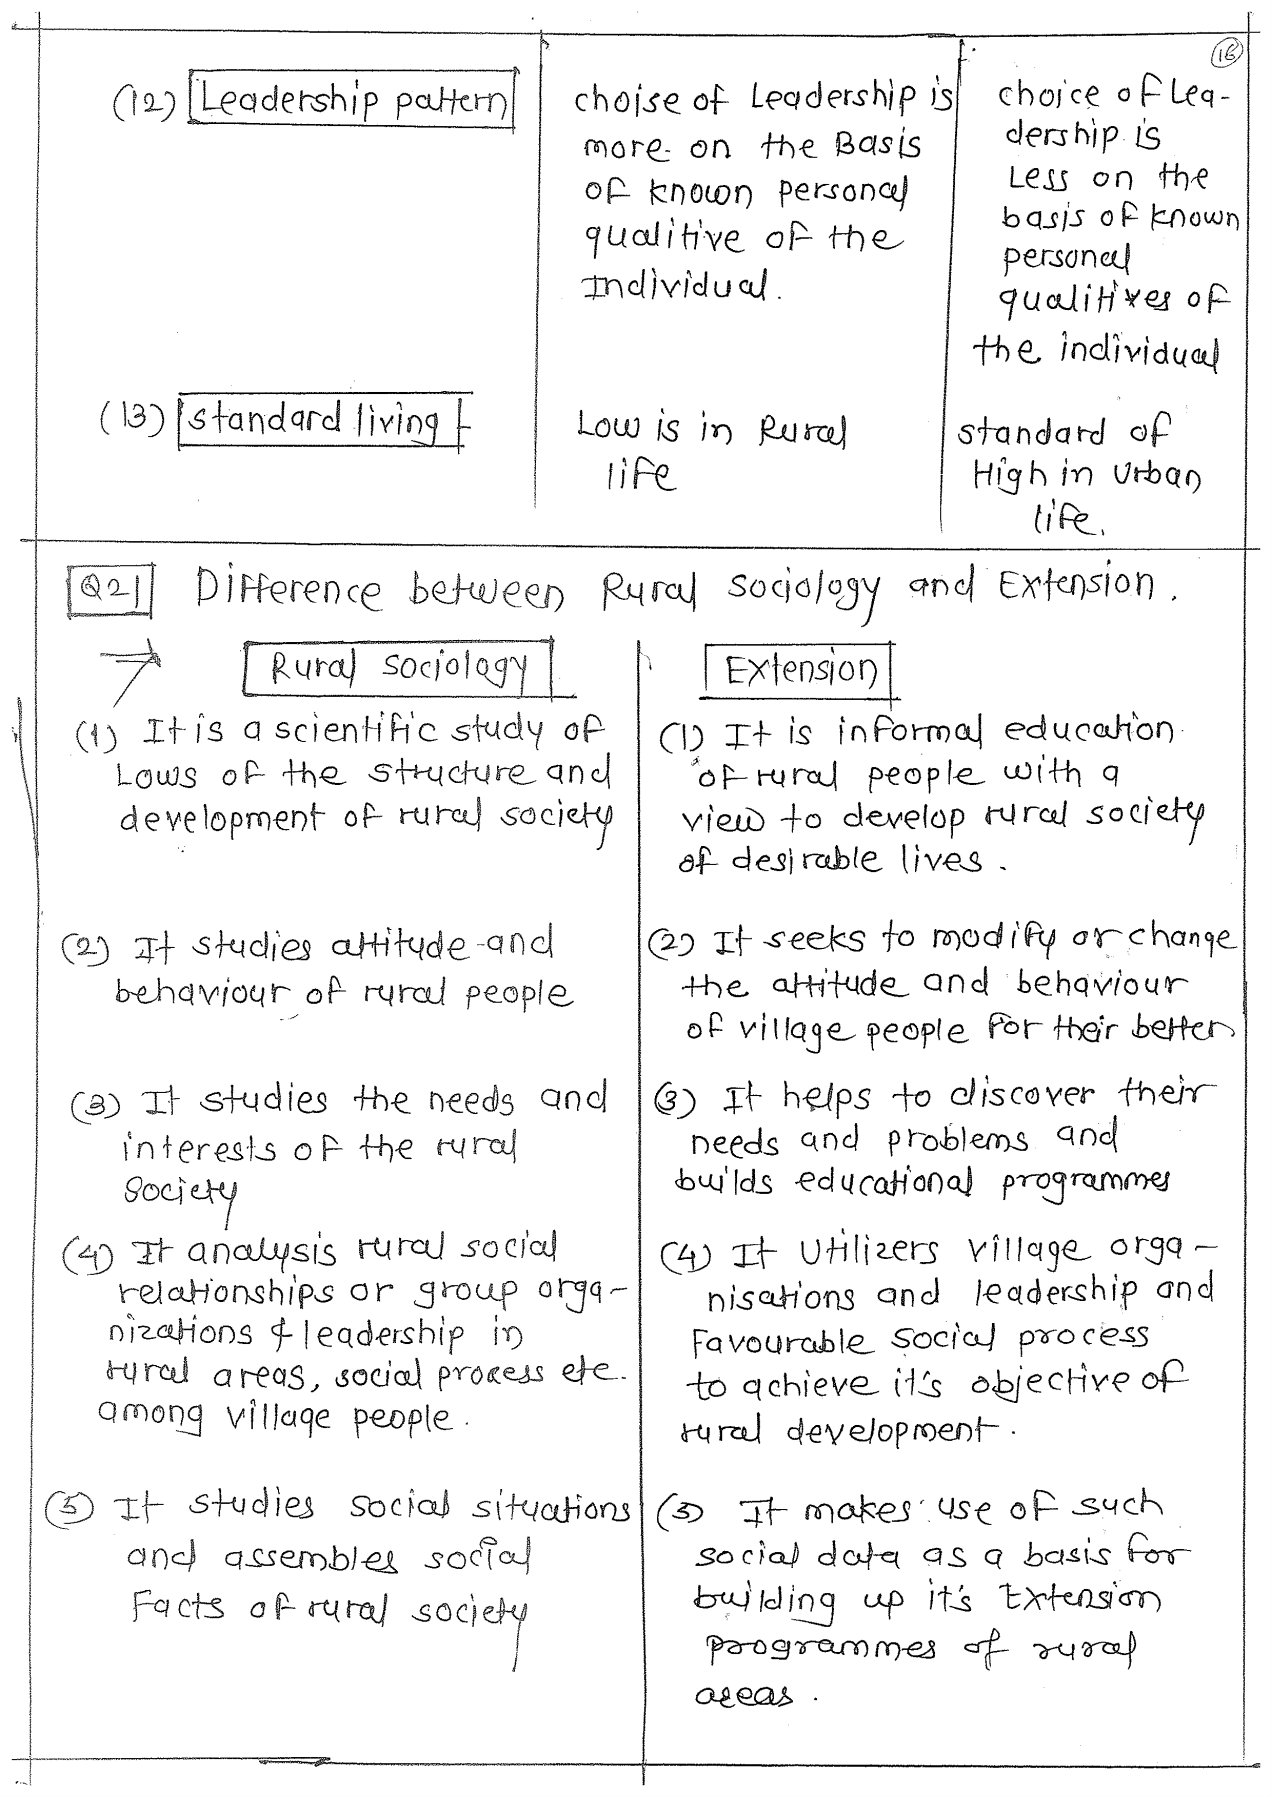 16
(12) Leadership pattern
choise of Leadership is
more on the Basis
of known personal
qualitive of the
Individual.
choice of Lea-
dership is
Less on the
basis of known
personal
qualitives of
the individual
(13) standard living
Low is in Rural
life
standard of
High in Urban
life.
Q2] Difference between Rural Sociology and Extension.
→ Rural Sociology
(1) It is a scientific study of
Lows of the structure and
development of rural society
(2) It studies attitude and
behaviour of rural people
(3) It studies the needs and
interests of the rural
society
(4) It analysis rural social
relationships or group orga-
nizations & leadership in
rural areas, social process etc.
among village people.
(5) It studies social situations
and assembles social
Facts of rural society
Extension
(1) It is informal education
of rural people with a
view to develop rural society
of desirable lives.
(2) It seeks to modify or change
the attitude and behaviour
of village people for their better
(3) It helps to discover their
needs and problems and
builds educational programmes
(4) It Utilizers village orga-
nisations and leadership and
Favourable social process
to achieve it's objective of
rural development.
(5) It makes use of such
social data as a basis for
building up it's Extension
programmes of rural
areas.